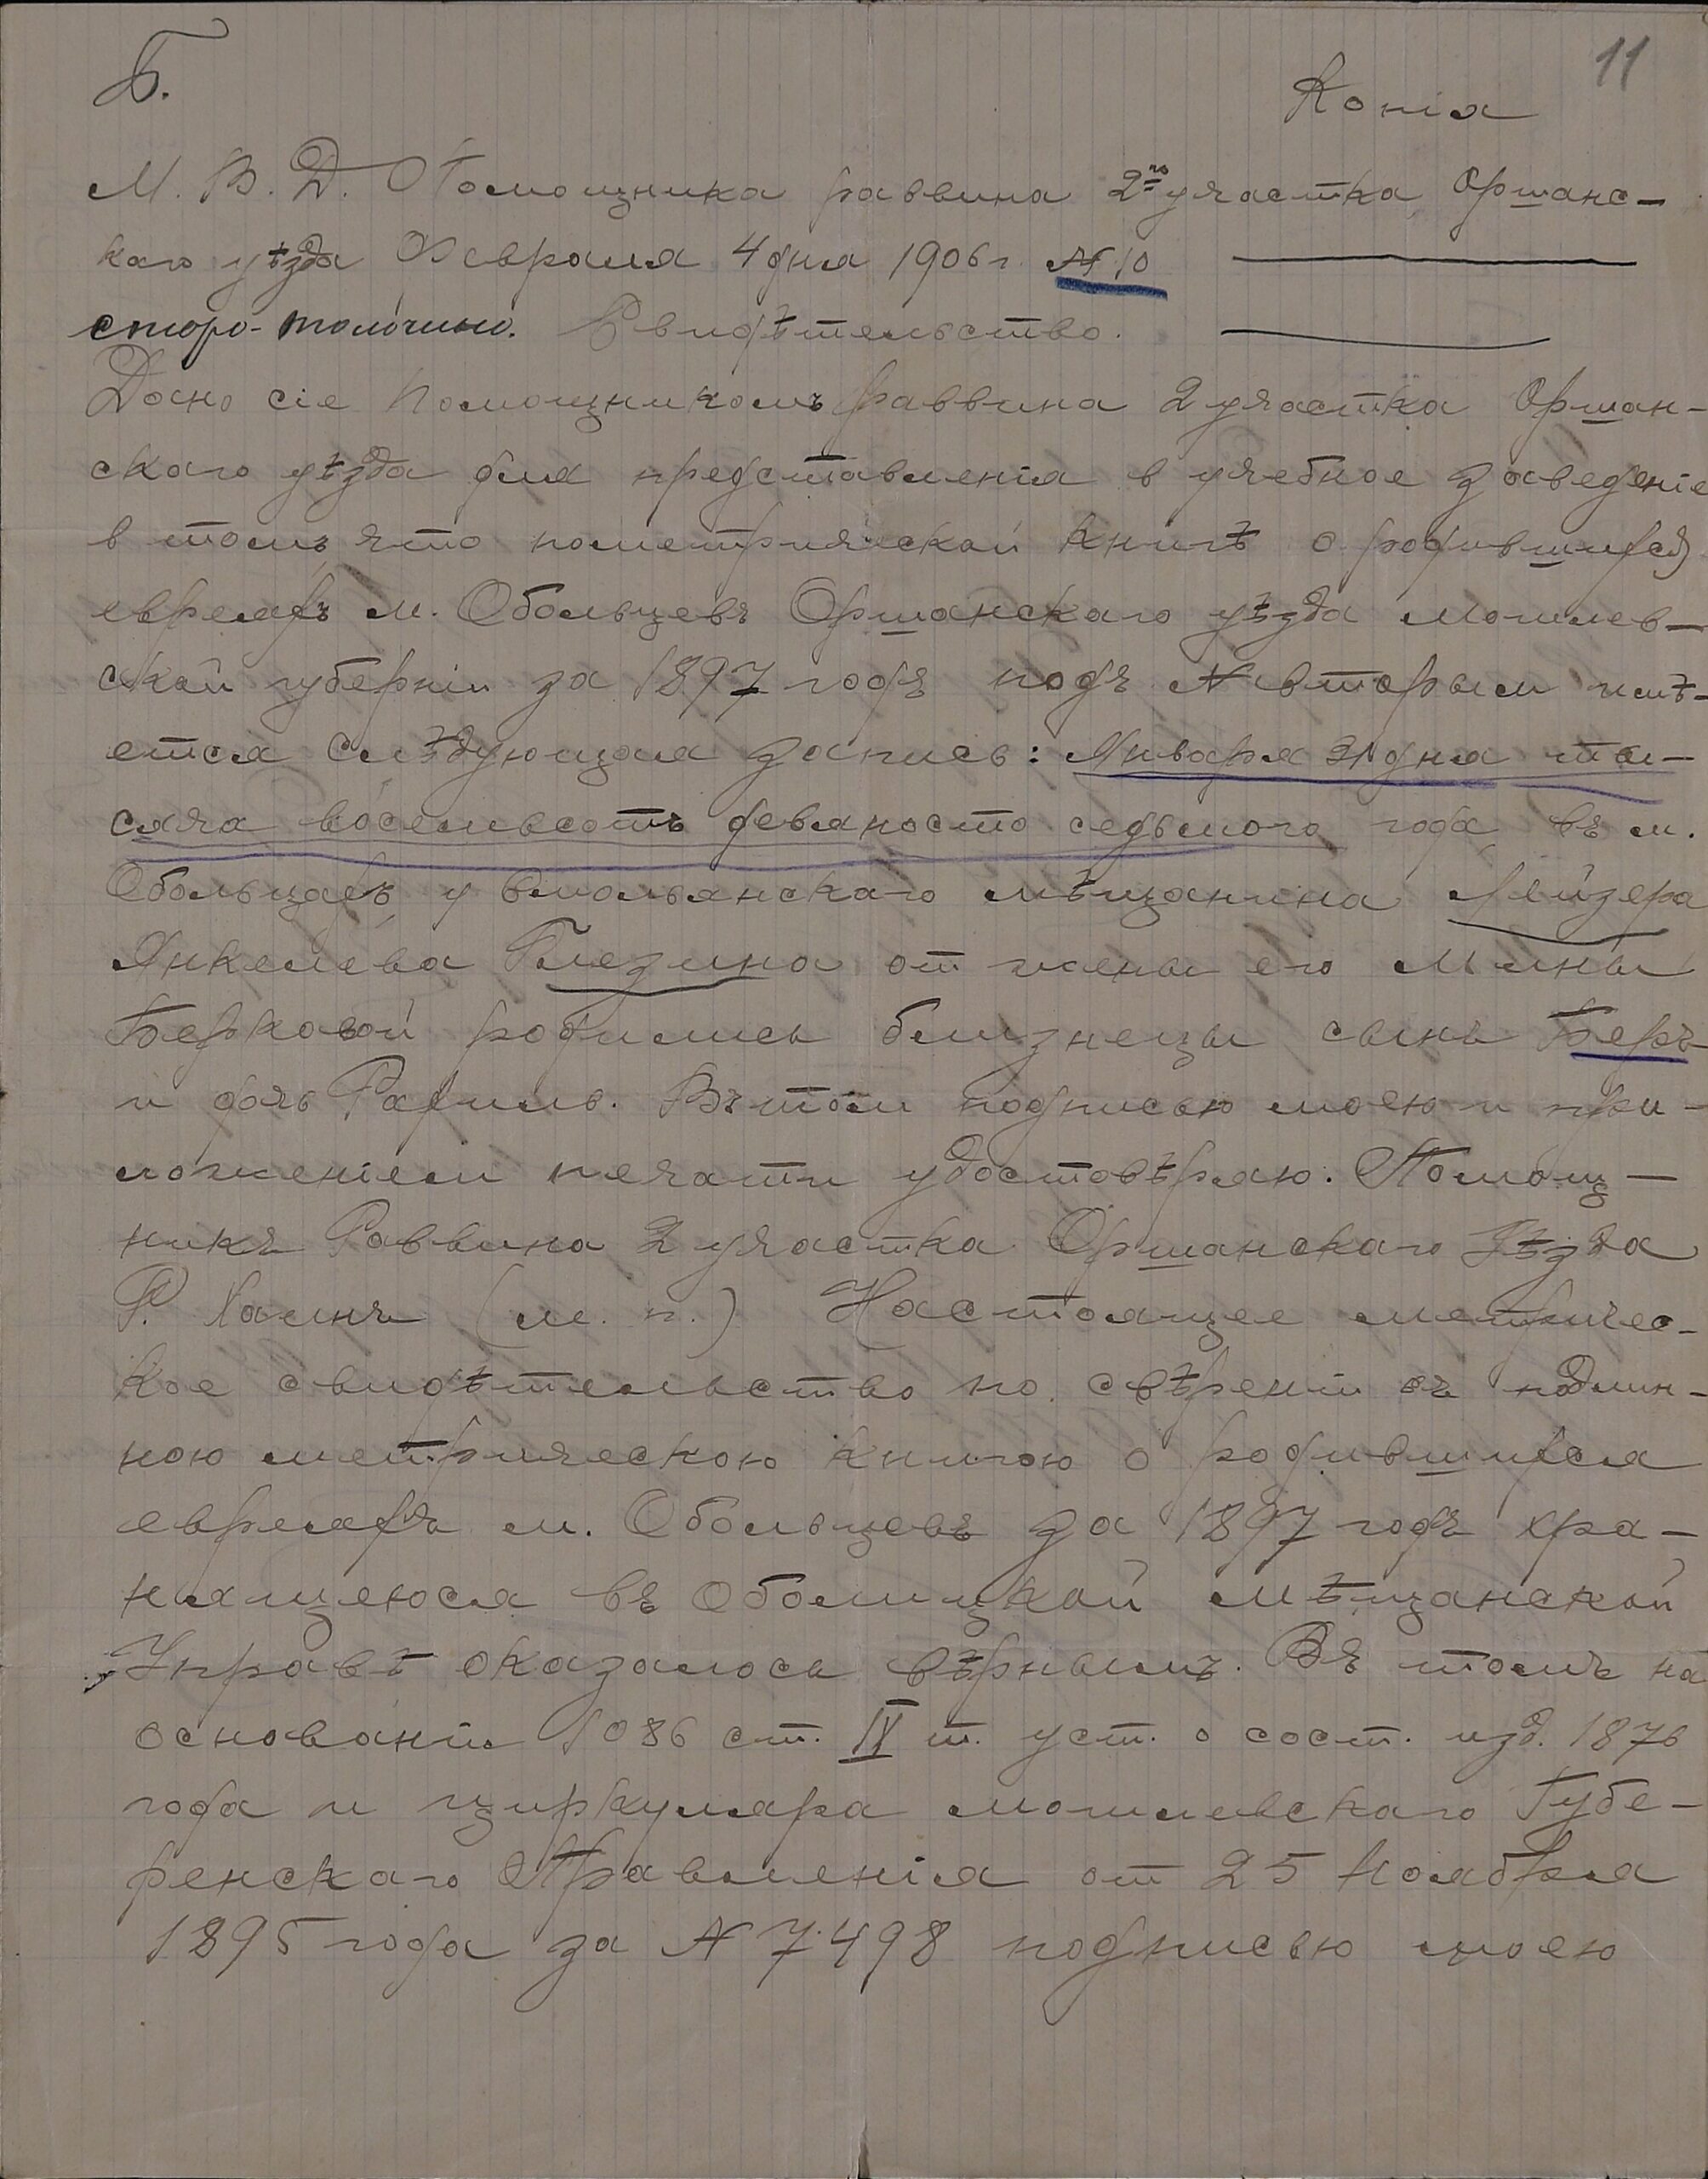 Б.
11
Копія
М. В. Д. Помощника раввина 2го участка Оршанс-
каго уѣзда Февраля 4 дня 1906 г. № 10
старо-толочинъ. Свидѣтельство.
Дано сіе Помощникомъ раввина 2 участка Оршан-
скаго уѣзда для представленія в учебное заведеніе
в томъ что пометрической книгѣ о родившихся
евреяхъ м. Обольцевъ Оршанскаго уѣзда могилев-
ской губерніи за 1897 годъ подъ № вторым имѣ-
ется слѣдующая запись: Января 31 дня ты-
сяча восемьсотъ девяносто седьмого года въ м.
Обольцахъ у Смольянскаго мѣщанина Лейзера
Янкелева Глезина от жены его Мины
Берковой родились близнецы сынъ Беръ
и дочь Рахиль. Въ том подписью моею и при-
ложеніем печати удостовѣряю. Помощ-
никъ Раввина 2 участка Оршанскаго Уѣзда
Р. Хаинъ (м. п.) Настоящее метричес-
кое свидѣтельство по свѣреніи съ подлин-
ною метрическою книгою о родившихся
евреяхъ м. Обольцевъ за 1897 годъ хра-
нящеюся въ Оболицкой мѣщанской
Управѣ оказалось вѣрнымъ. Въ томъ на
основаніи 1086 ст. IX т. уст. о сост. изд. 1876
года и циркуляра могилевскаго Губе-
ренскаго Правленія от 25 Ноября
1895 года за № 7498 подписью моею